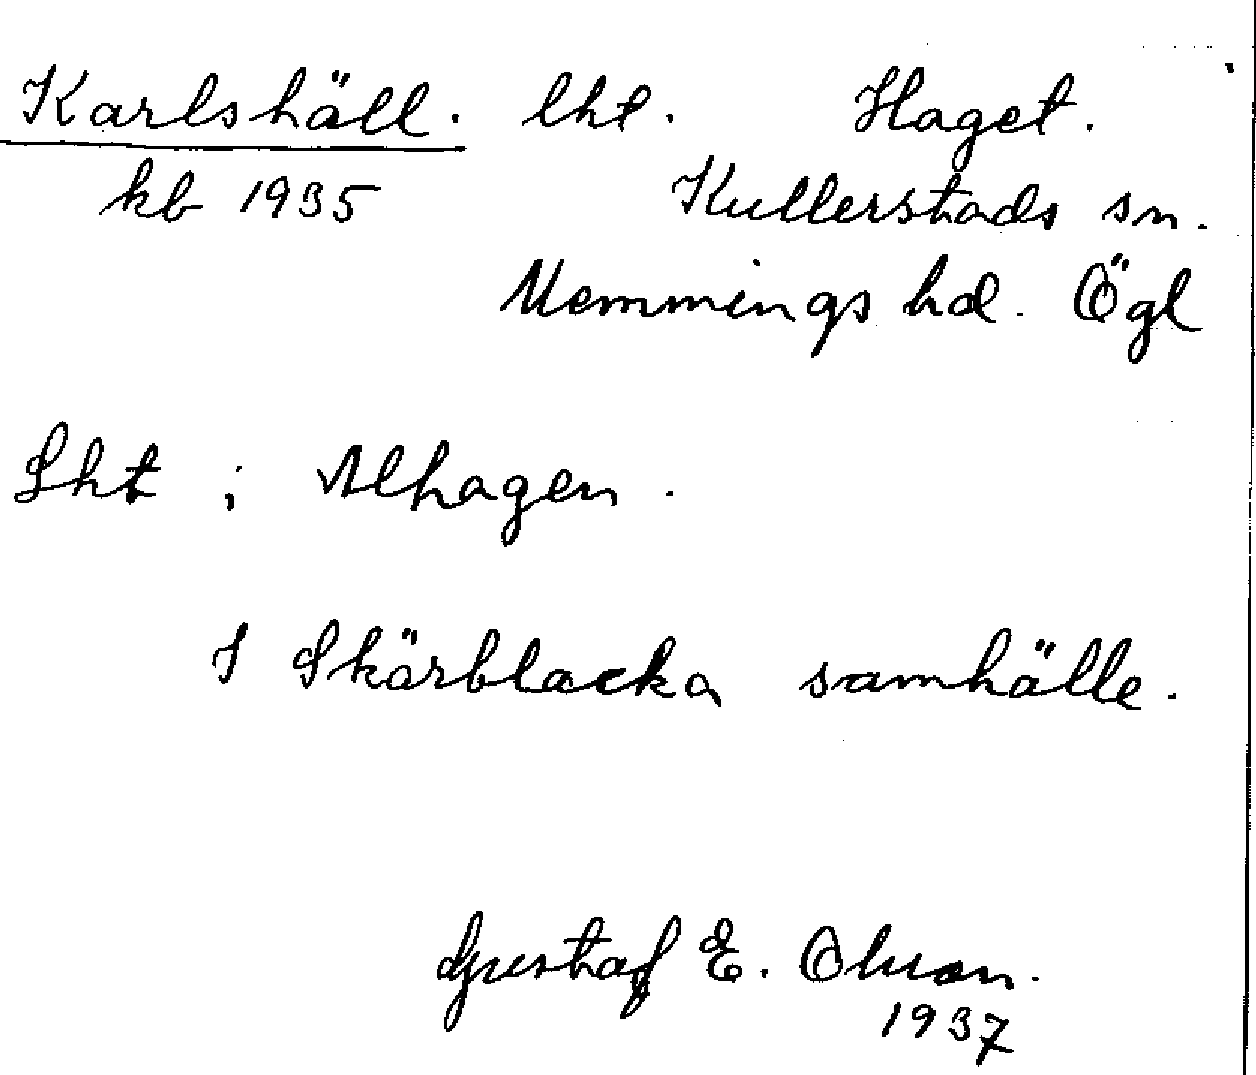 Karlshäll. lht. Haget.
kb 1935 Kullerstads sn.
Memmings hd. Ögl
Lht i Alhagen.
I Skärblacka samhälle.
Gustaf E. Olson.
1937